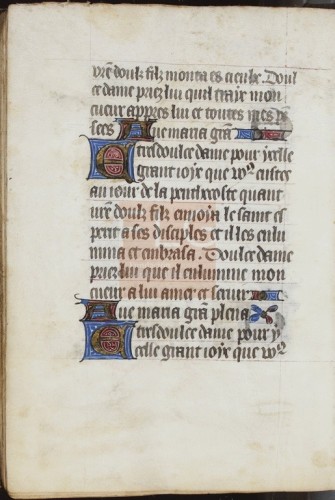 vr̄e doulz filz monta es cieulx. Doul
ce dame priez lui quil traye mon
cueur appres lui et toutes mes pē
sees Aue maria grā
E tresdoulce dame pour ycelle
grant ioye que voꝰ eustes
au iour de la penthecoste quant
vr̄e doulz filz enuoya le saint es
perit a ses disciples et il les enlu
mina et embrasa. Doulce dame
priez lui que il enlumine mon
cueur a lui amer et seruir
Aue maria grā plena
E tresdoulce dame pour y
celle grant ioye que voꝰ